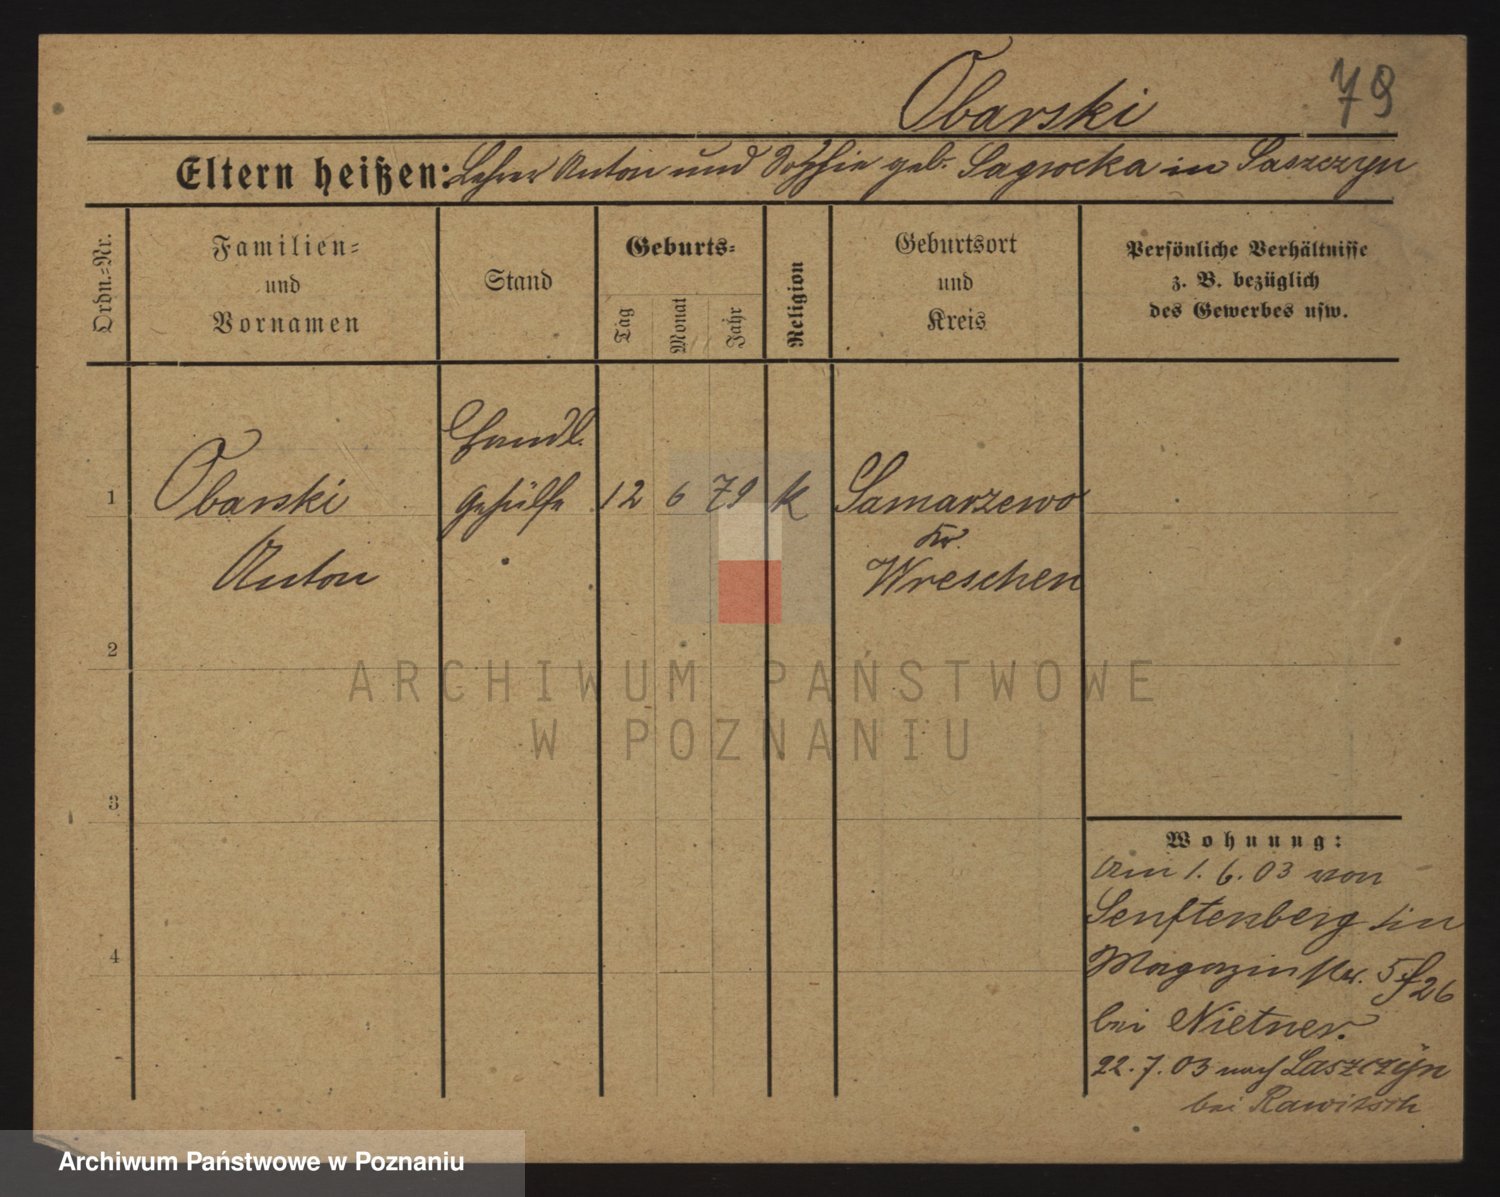 79
Obarski
Eltern heißen: Lehrer Anton und Sophie geb. Sagrocka in Laszczyn
Ordn.=Nr.
Familien=
und
Vornamen
Stand
Geburts=
Tag
Monat
Jahr
Religion
Geburtsort
und
Kreis
Persönliche Verhältnisse
z. B. bezüglich
des Gewerbes usw.
1
Obarski
Anton
Handl.
gehülfe
12 6 79 k
Samarzewo
Kr.
Wreschen
2
3
4
Wohnung:
Am 1. 6. 03 von
Senftenberg in
Magazinstr. 526
bei Nietner.
22. 7. 03 nach Laszczyn
bei Rawitsch
ARCHIWUM PAŃSTWOWE
W POZNANIU
Archiwum Państwowe w Poznaniu